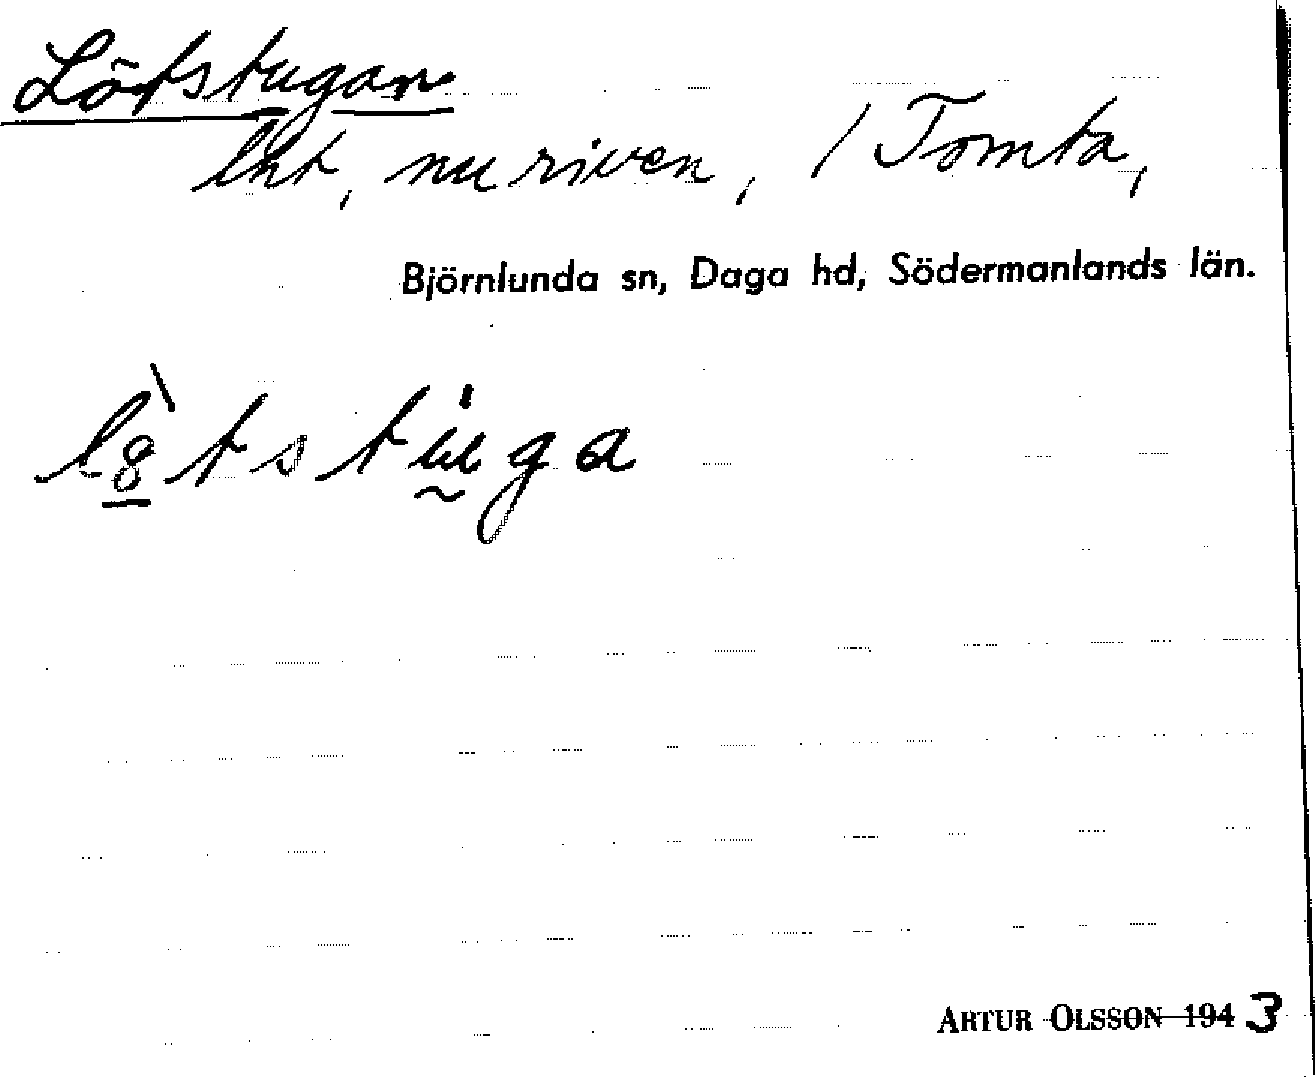 Lötstugan
lht, nu riven, / Tomta,
Björnlunda sn, Daga hd, Södermanlands län.
l8̲̀tstṵ̇ga
ARTUR OLSSON 1943